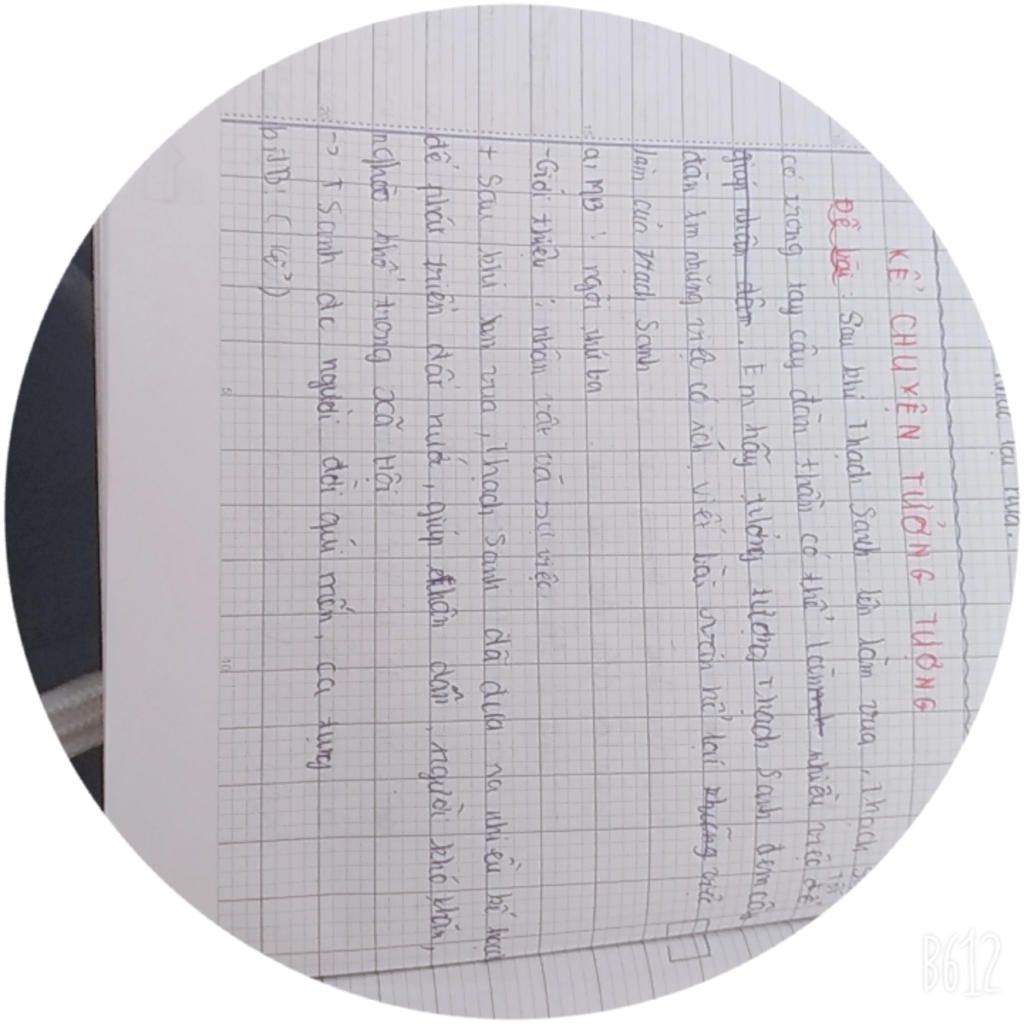 KỂ CHUYỆN TƯỞNG TƯỢNG
Đề bài: Sau khi Thạch Sanh lên làm vua, Thạch
có trong tay cây đàn thần có thể làm nhiều việc để
giúp nhân dân. Em hãy tưởng tượng Thạch Sanh đem cây
đàn làm những việc có ích viết bài văn kể lại những việc
làm của Thạch Sanh
a, MB: ngôi thứ ba
-Giới thiệu: nhân vật và sự việc
+ Sau khi làm vua, Thạch Sanh đã đưa ra nhiều kế hoạch
để phát triển đất nước, giúp nhân dân, người khó khăn,
nghèo khổ trong xã hội
-> T Sanh đc người đời quí mến, ca tụng
b,TB: (
B612